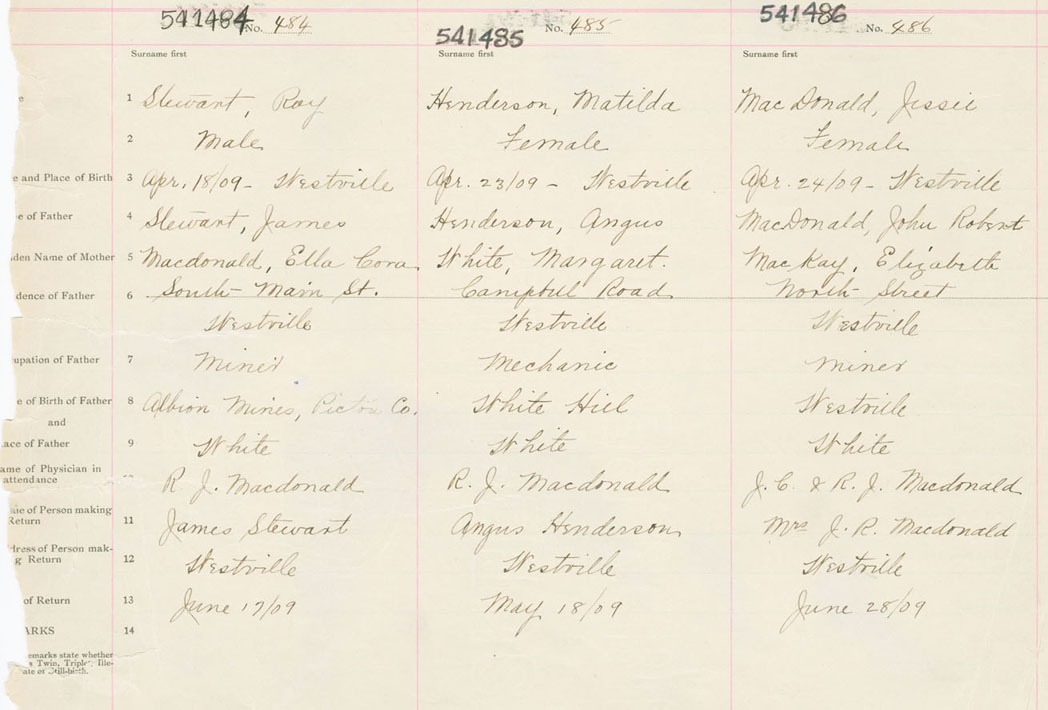 541484 No. 484
541485 No. 485
541486 No. 486
Surname first Surname first Surname first
1 Stewart, Roy Henderson, Matilda MacDonald, Jessie
2 Male Female Female
e and Place of Birth 3 Apr. 18/09 - Westville Apr. 23/09 - Westville Apr. 24/09 - Westville
e of Father 4 Stewart, James Henderson, Angus MacDonald, John Robert
den Name of Mother 5 Macdonald, Ella Cora White, Margaret. MacKay, Elizabeth
dence of Father 6 South Main St. Campbell Road North Street
Westville Westville Westville
upation of Father 7 Miner Mechanic Miner
e of Birth of Father 8 Albion Mines, Pictou Co. White Hill Westville
and
ace of Father 9 White White White
ame of Physician in
attendance R J. Macdonald R. J. Macdonald J. C. & R. J. Macdonald
me of Person making
Return 11 James Stewart Angus Henderson Mrs J. R. Macdonald
dress of Person mak-
g Return 12 Westville Westville Westville
of Return 13 June 17/09 May 18/09 June 28/09
ARKS 14
emarks state whether
s Twin, Triplet, Ille-
ate or Still-birth.